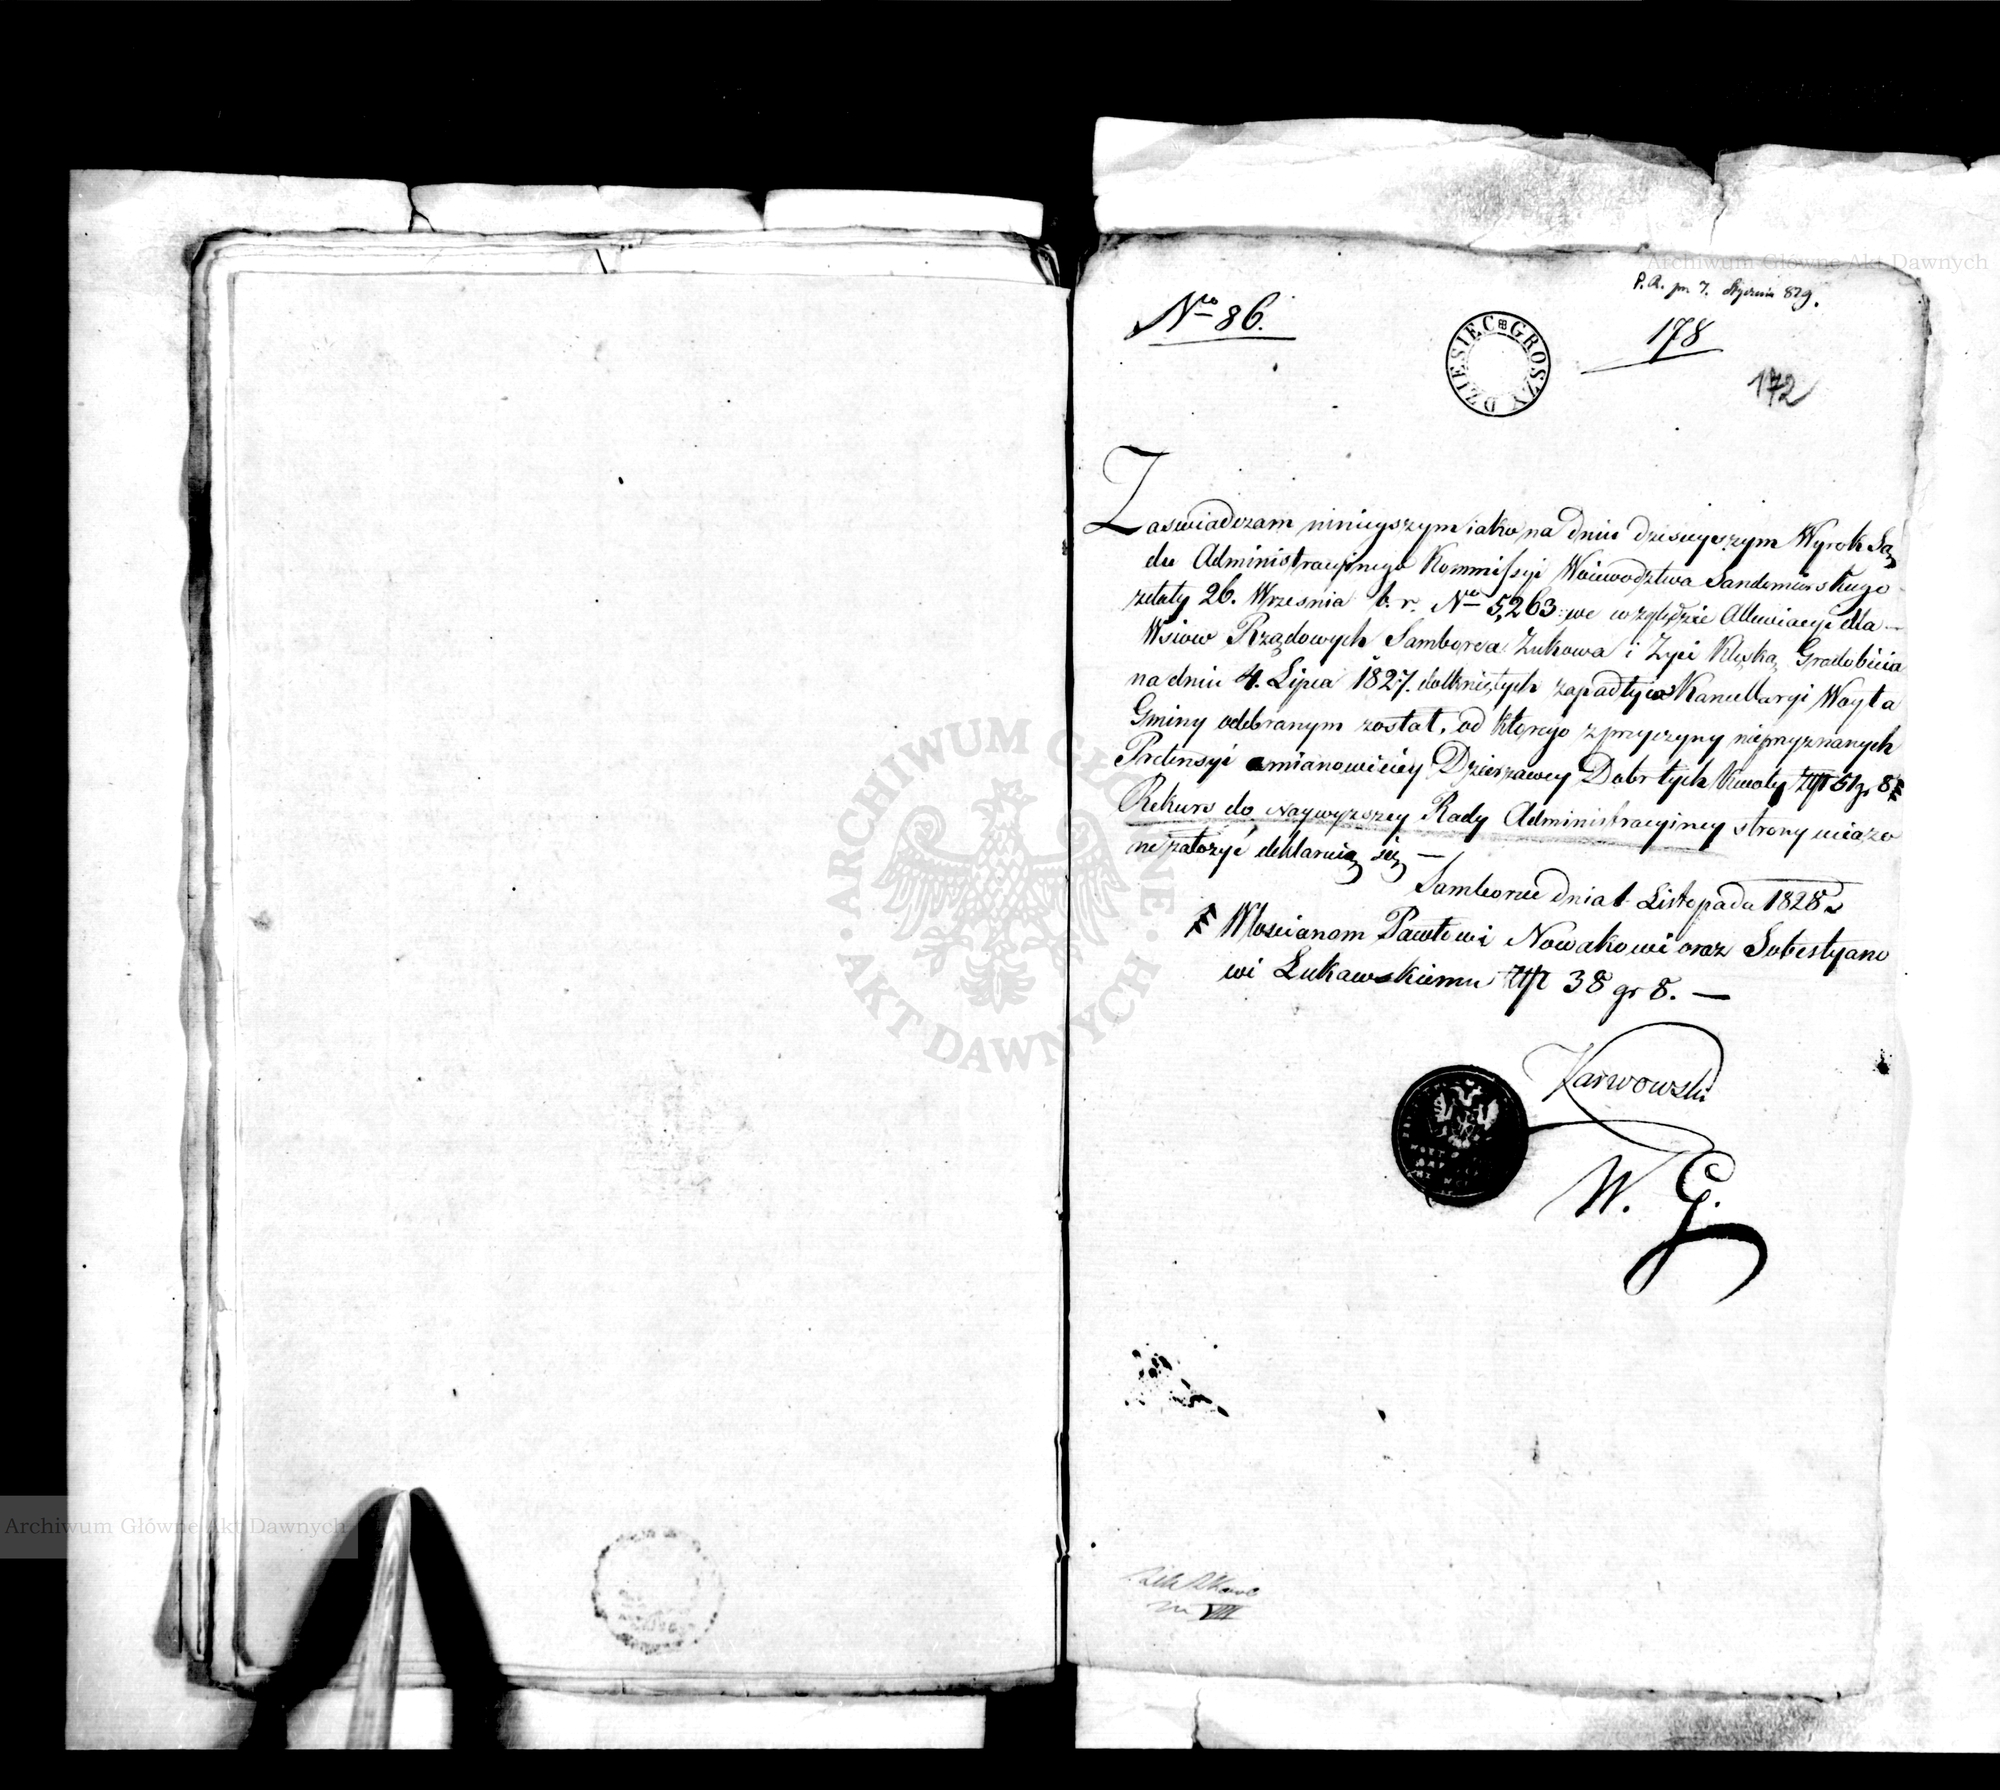 P. R. pr. 7. Stycznia 829.
Nro 86.
DZIESIEC GROSZY
178
172
Zaswiadczam ninieyszym iako na dniu dzisieyszym Wyrok Są
du Administracyinego Kommissyi Woiewodztwa Sandomirskiego
zdaty 26. Wrzesnia b. r. Nro 5,263 we względzie Allewiacyi dla
Wsiow Rządowych Samborca Zukowa i Zyci Klęską Gradobicia
na dniu 4. Lipca 1827. dotkniętych zapadły w Kancellaryi Woyta
Gminy odebranym został, od ktorego z przyczyny nieprzyznanych
Pretensyi a mianowiciey Dzierzawcy Dobr tych Kwoty złp 51 gr 8
Rekurs do Naywyzszey Rady Administracyiney strony uciązo
ne założyć deklaruią się —
Samborzec dnia 1 Listopada 1828
Włoscianom Pawłowi Nowakowi oraz Sobestyano
wi Lukawskiemu złp 38 gr 8. —
Karwowski
W. G.
VIII
ARCHIWUM GŁÓWNE AKT DAWNYCH
Archiwum Główne Akt Dawnych
Archiwum Główne Akt Dawnych